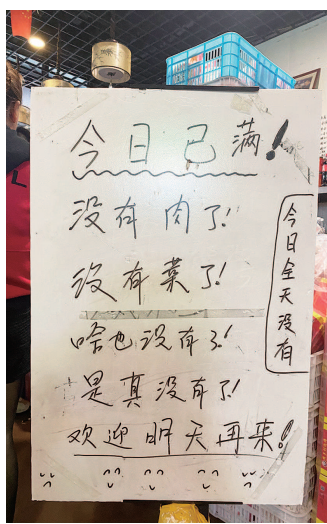 今日已满!
没有肉了!!
没有菜了!
啥也没有了!!
是真没有了!
欢迎明天再来!!
今日全天没有